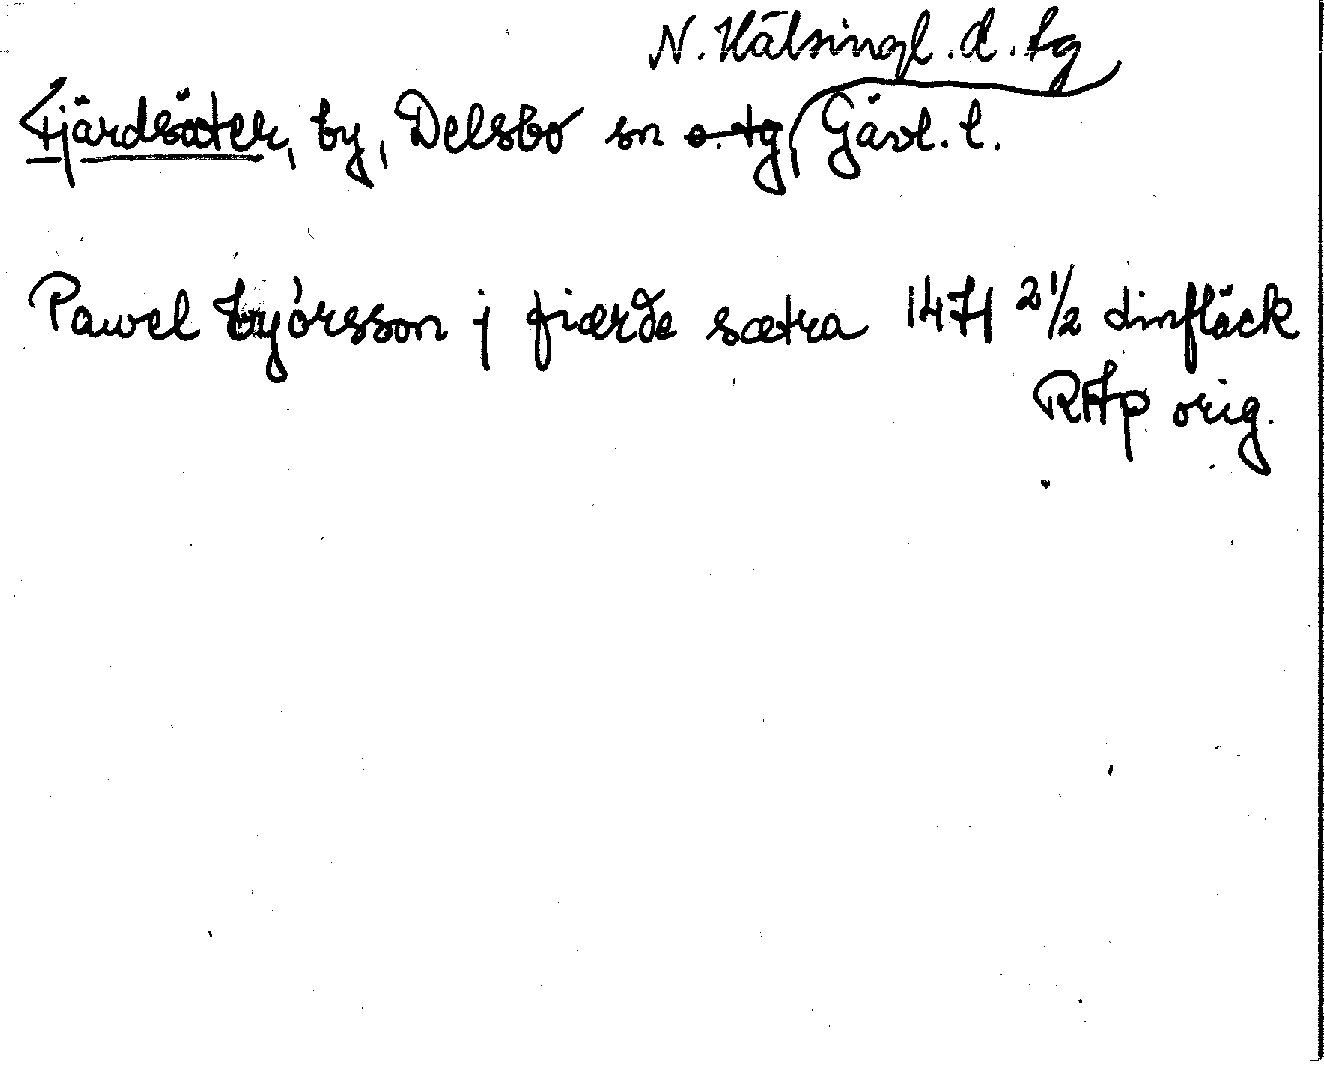 N. Hälsingl. d. tg
Fjärdsäter, by, Delsbo sn o. tg, Gävl. l.
Pawel byórsson j fiærde sætra 1471 2 1/2
RAp orig.